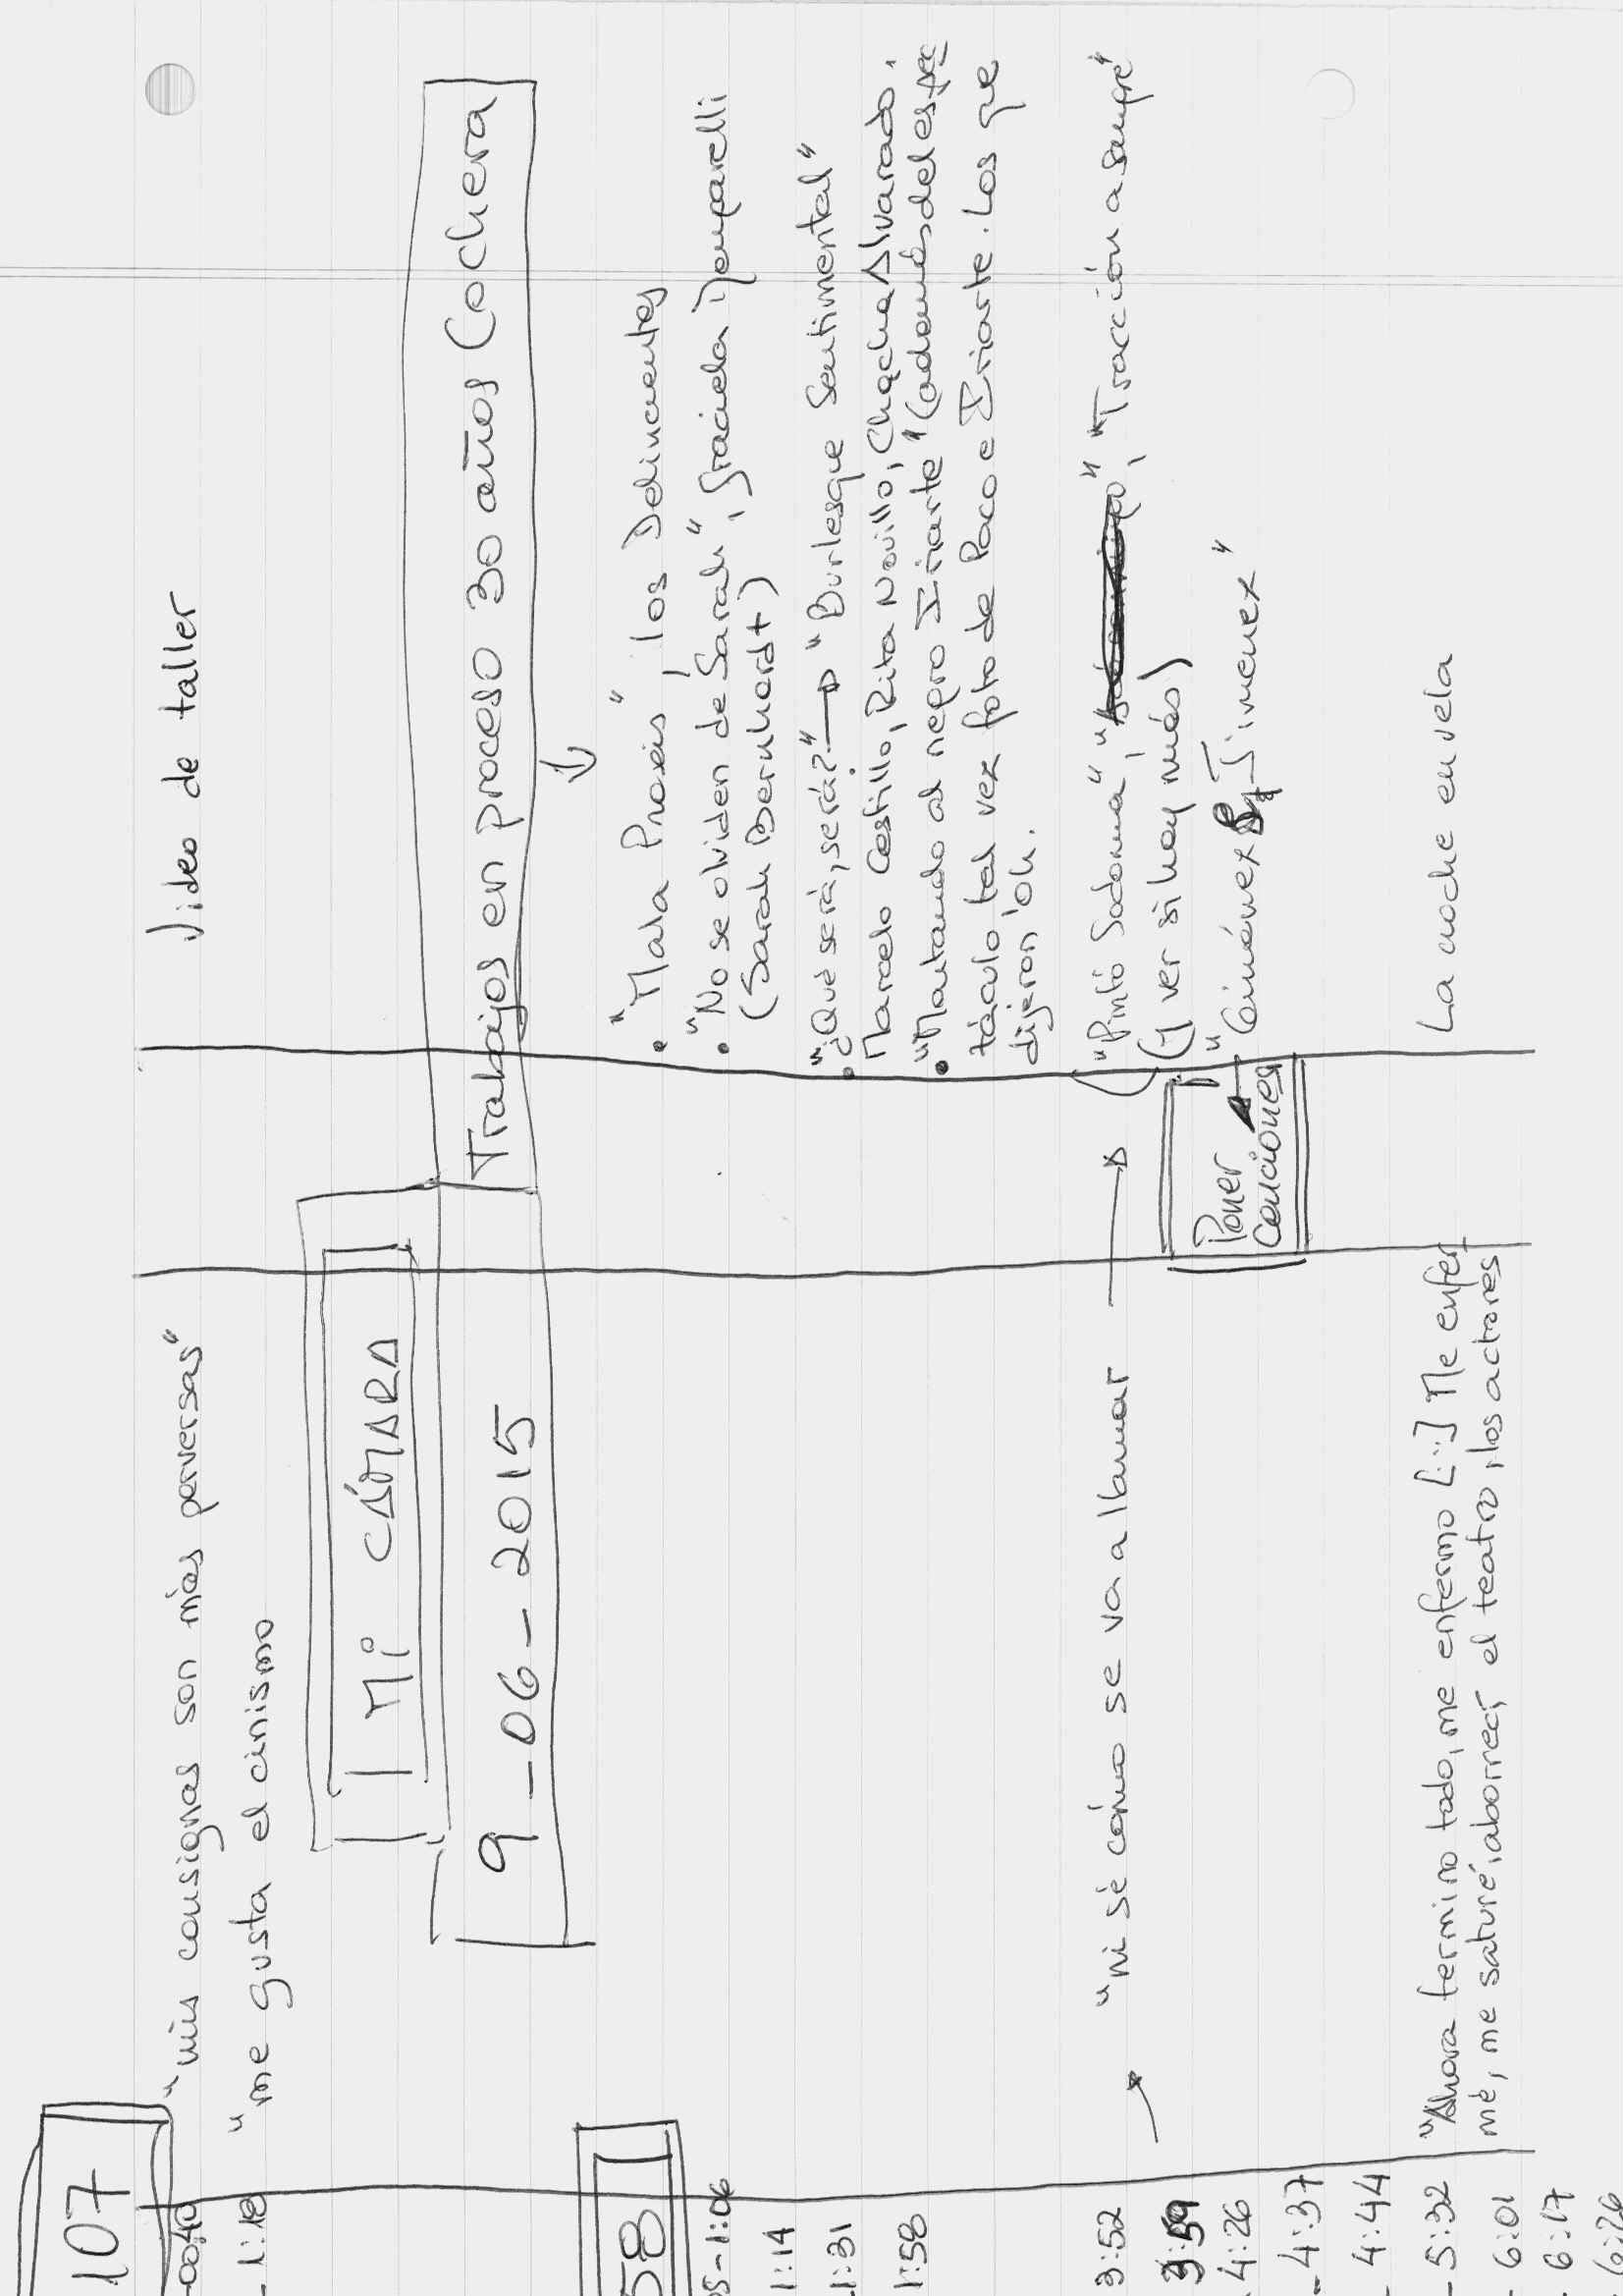 107
-00:40 "mis consignas son más perversas" Video de taller
- 1:18 "me gusta el cinismo
MI CÁMARA
9-06-2015 Trabajos en proceso 30 años Cochera
58
• "Mala Praxis", los Delincuentes
05-1:06 • "No se olviden de Sarah", Graciela
1:14 (Sarah Bernhardt)
1:31 • "¿Qué será, será?" → "Burlesque Sentimental"
Marcelo Castillo, Rita Novillo, Chacha Alvarado.
1:58 • "Matando al negro Iriarte" (además del espec
táculo tal vez foto de Paco e Iriarte. Los que
dijeron 'oh.
3:52 "ni sé cómo se va a llamar → "Pintó Sodoma", "Tracción a sangre"
3:59 (y ver si hay más)
4:26 Poner canciones "Giménez Jimenex"
- 4:37
- 4:44
- 5:32 "Ahora termino todo, me enfermo [...] Me enfer La noche en vela
- 6:01 mé, me saturé, aborrecí el teatro, los actores
- 6:17
6:26